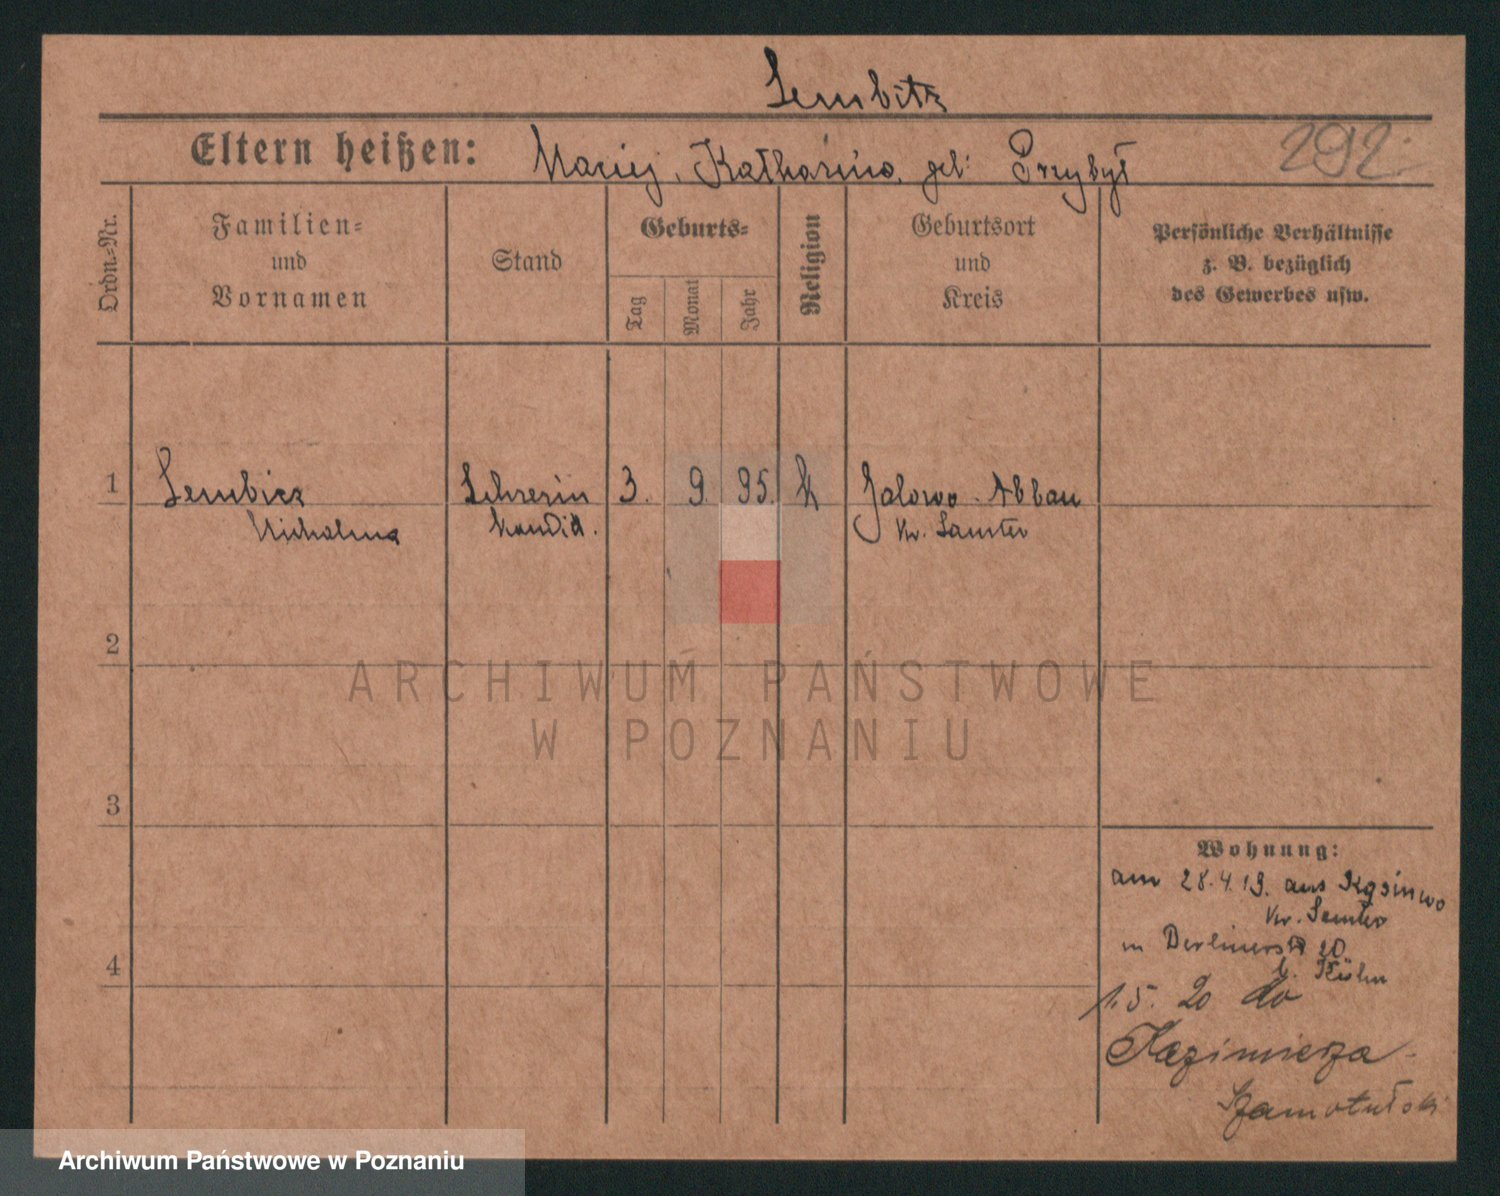 Sembitz
Eltern heißen: Maciej, Katharina, geb. Przybył 292.
Ordn.-Nr.
Familien-
und
Vornamen
Stand
Geburts-
Tag
Monat
Jahr
Religion
Geburtsort
und
Kreis
Persönliche Verhältnisse
z. B. bezüglich
des Gewerbes usw.
1 Lehrerin 3. 9. 95. k Abbau
kandid. Kr. Samter
2
ARCHIWUM PAŃSTWOWE
W POZNANIU
3
Wohnung:
am 28.4.19. aus
Kr.
in 20
4
1.5. 20 do
Kazimierza
Archiwum Państwowe w Poznaniu